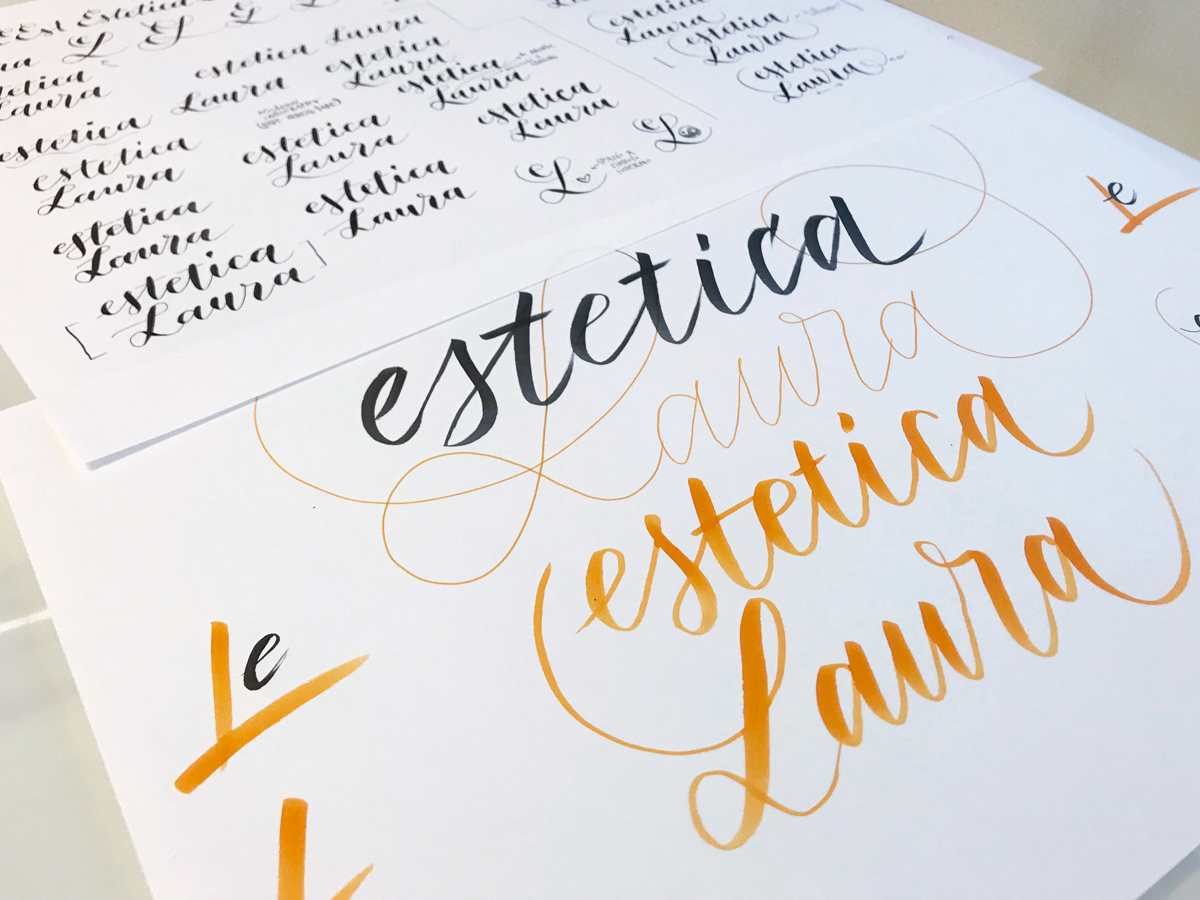 Est Estetica
estetica Laura
estetica
Laura
estetica
Laura
estetica
Laura
estetica
Laura
estetica
Laura
estetica
Laura
estetica
Laura
estetica
Laura
estetica
Laura
estetica
Laura
estetica
Laura
estetica
Laura
estetica
Laura
L
L
estetica
Laura
estetica
Laura
Le
Le
L